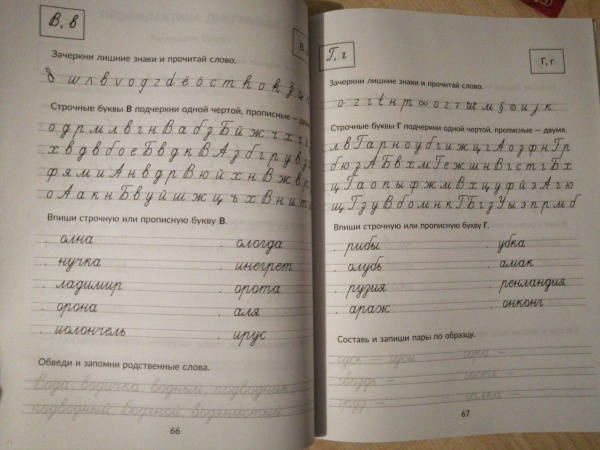 В, в
Зачеркни лишние знаки и прочитай слово.
Строчные буквы В подчеркни одной чертой, прописные — двумя.
о д р м л в г н В а б з Б й ж ч х
х в д в б о е Б в д к В А з б г р у в
ф я м и А н в д р В ю й х н В ж в
о А а к н Б в у й ш ж ц ъ х В н ш т
Впиши строчную или прописную букву В.
. олна . ологда
. нучка . инегрет
. ладимир . орота
. орона . аля
. иолончель . ирус
Обведи и запомни родственные слова.
Вода, водичка, водный, подводник,
подводный, Водяной, водянистый
66
Г, г
Г, г
Зачеркни лишние знаки и прочитай слово.
Строчные буквы Г подчеркни одной чертой, прописные — двумя.
л в Г а р н о у б г и ж ц г А о з ф н Г р
б ю з А Б в х м Г е ж ш н В г с т г Б х
ц Г а о п ы ф ж м В х ц у ф й з А г ю
щ Г з у В б о м н к Г Б г з У ы э п р м б
Впиши строчную или прописную букву Г.
. рибы . убка
. олубь . амак
. рузия . ренландия
. араж . онконг
Составь и запиши пары по образцу.
гусь — гуси
гвоздь — гость —
67